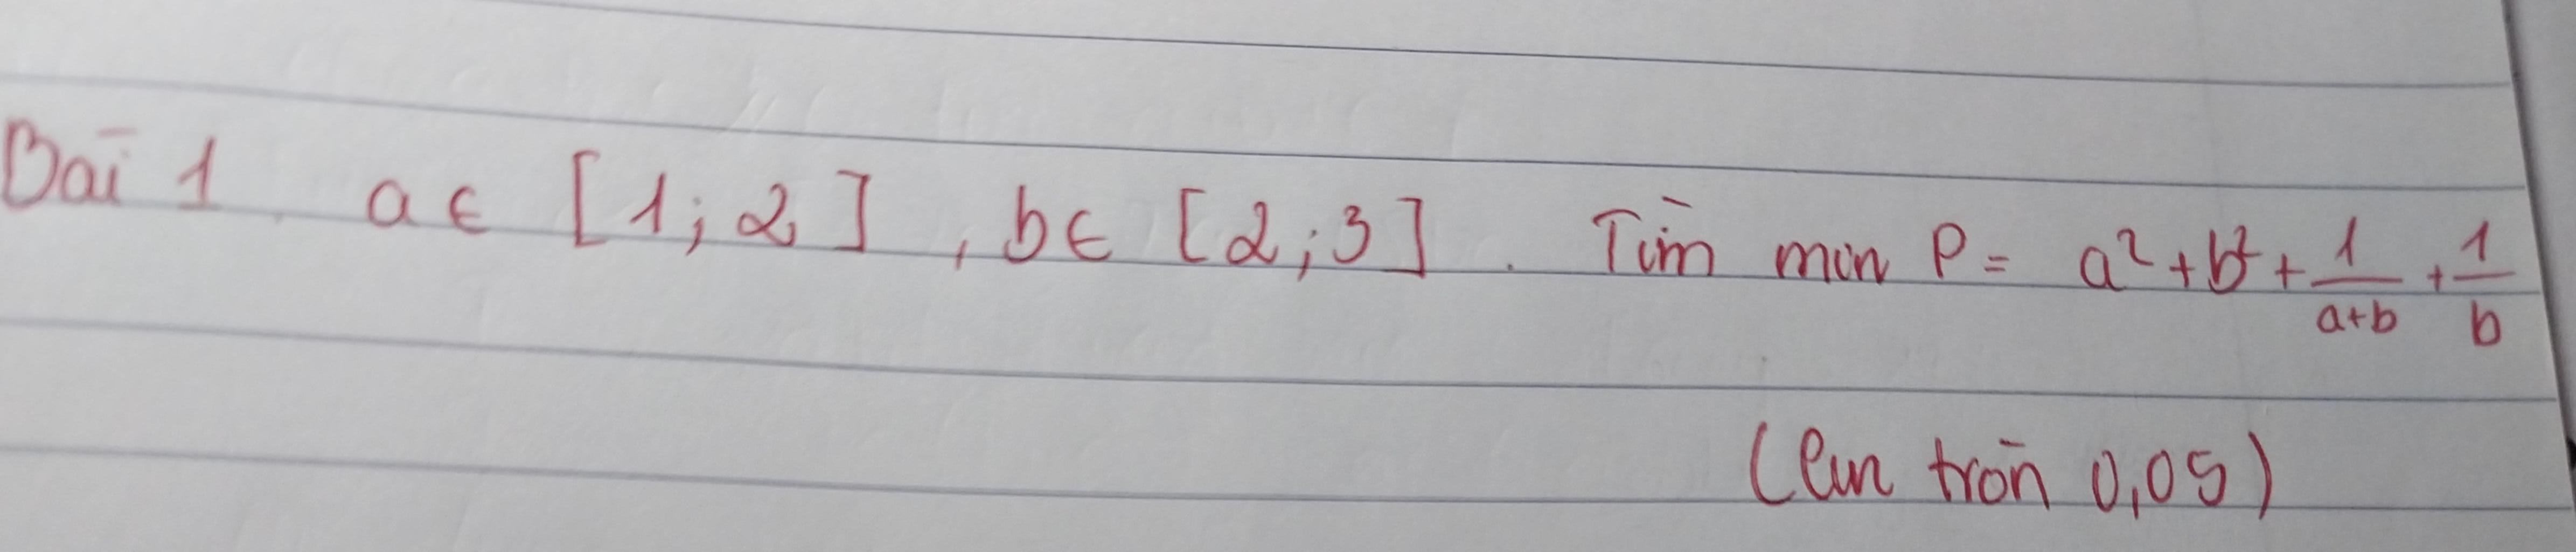 Bài 1 a ∈ [1; 2], b ∈ [2; 3]. Tìm min P = a² + b² + 1/(a+b) + 1/b
(làm tròn 0,05)